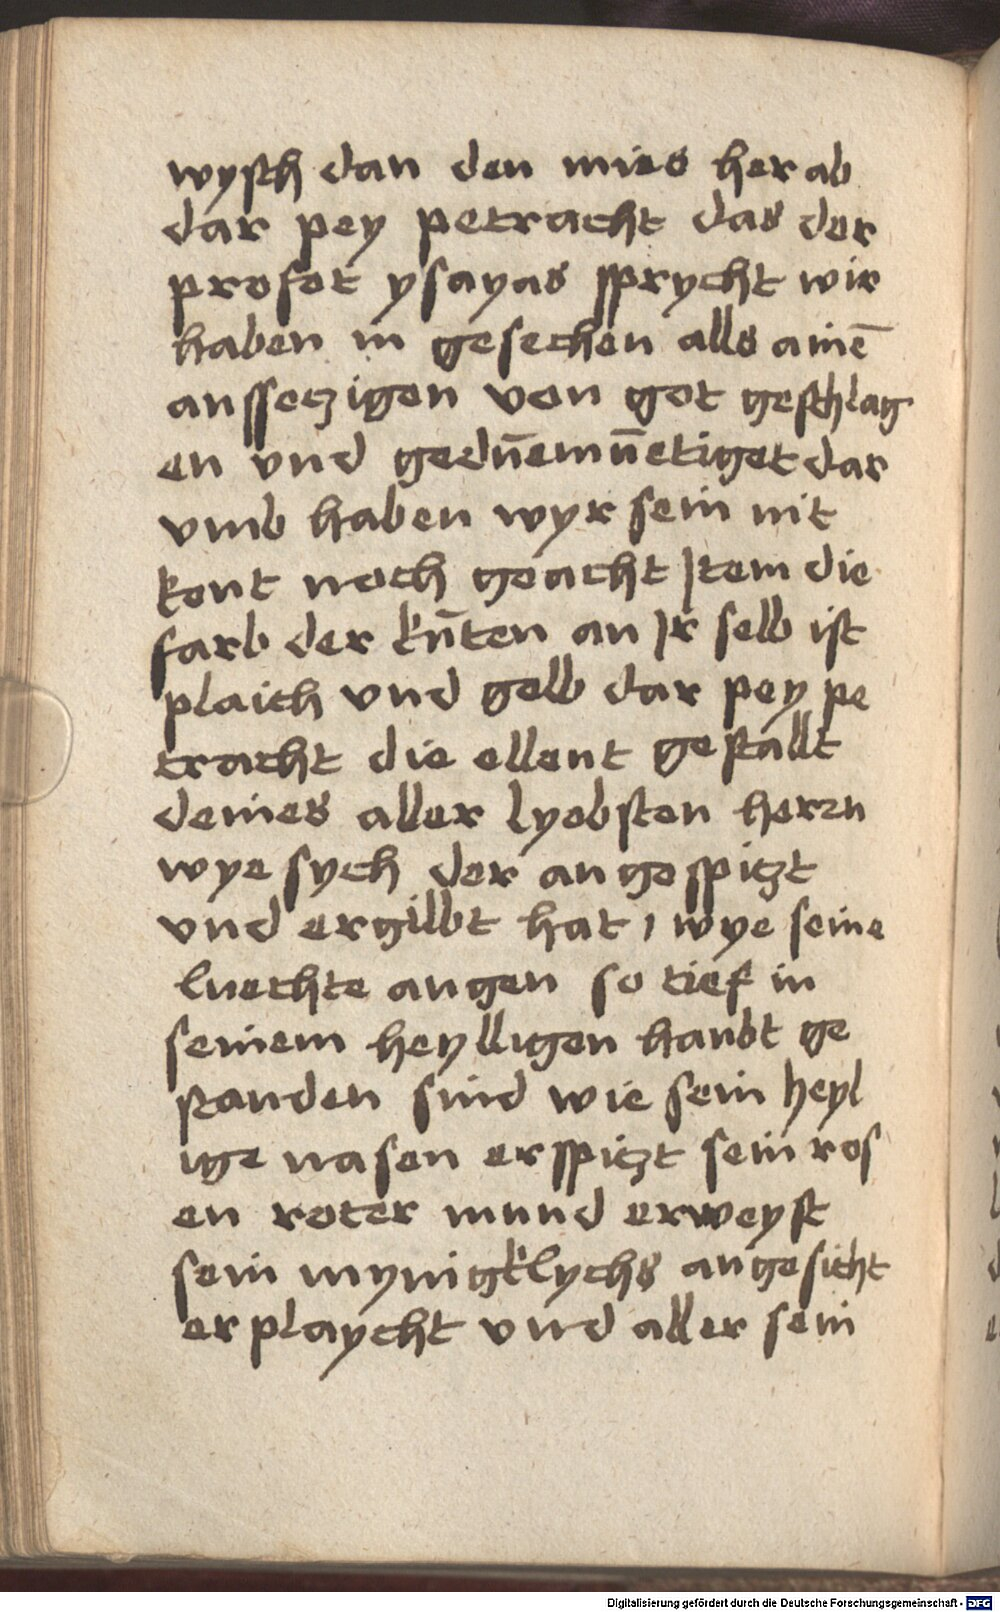 wysch dan den mies her ab
dar pey petracht das der
profet ysayas sprycht wir
haben in gesechen alls ainē
aussetzigen von got geschlag
en vnd gedūemūetiget dar
vmb haben wyr sein nit
kent noch geacht Jtem die
farb der kūten an Jr selb ist
plaich vnd gelb dar pey pe
tracht die ellent gestallt
deines aller lyebsten herzn
wye sych der an gespitzt
vnd ergilbt hat / wye seine
luechte augen so tief in
seinem heylligen haubt ge
standen sind wie sein heyl
ige nasen erspitzt sein ros
en roter mund erweyst
sein mynigklychs angesicht
er playcht vnd aller sein
Digitalisierung gefördert durch die Deutsche Forschungsgemeinschaft - DFG